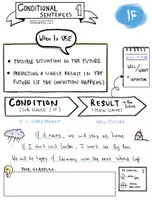 CONDITIONAL
SENTENCES
1
IF
When to USE
POSSIBLE SITUATION IN THE FUTURE
PREDICTING A LIKELY RESULT IN THE
FUTURE (IF THE CONDITION HAPPENS)
WILL / WON'T
+
INFINITIVE
CONDITION
(SUB CLAUSE / IF)
RESULT in the future
(MAIN CLAUSE)
IF + SIMPLE PRESENT
WILL-FUTURE
If it rains, we will stay at home
If I don't win London, I won't see Big Ben
We will be happy if Germany wins the next World Cup
YOUR EXAMPLES: